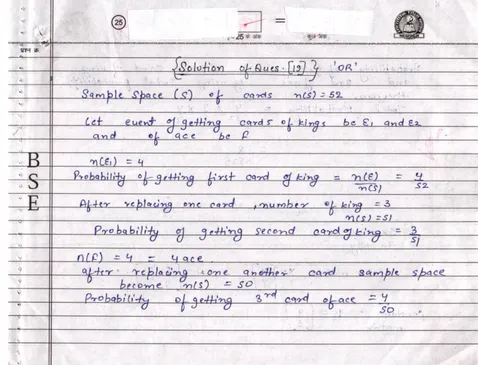 25
=
प्रश्न क्र.
Solution of Ques. [19] 'OR'
Sample Space (S) of cards n(S) = 52
Let event of getting cards of kings be E1 and E2
and of ace be F
n(E1) = 4
Probability of getting first card of king = n(E)/n(S) = 4/52
After replacing one card, number of king = 3
n(S) = 51
Probability of getting second card of king = 3/51
n(F) = 4 = 4 ace.
after replacing one another card sample space
become n(S) = 50
Probability of getting 3rd card of ace = 4/50
B
S
E